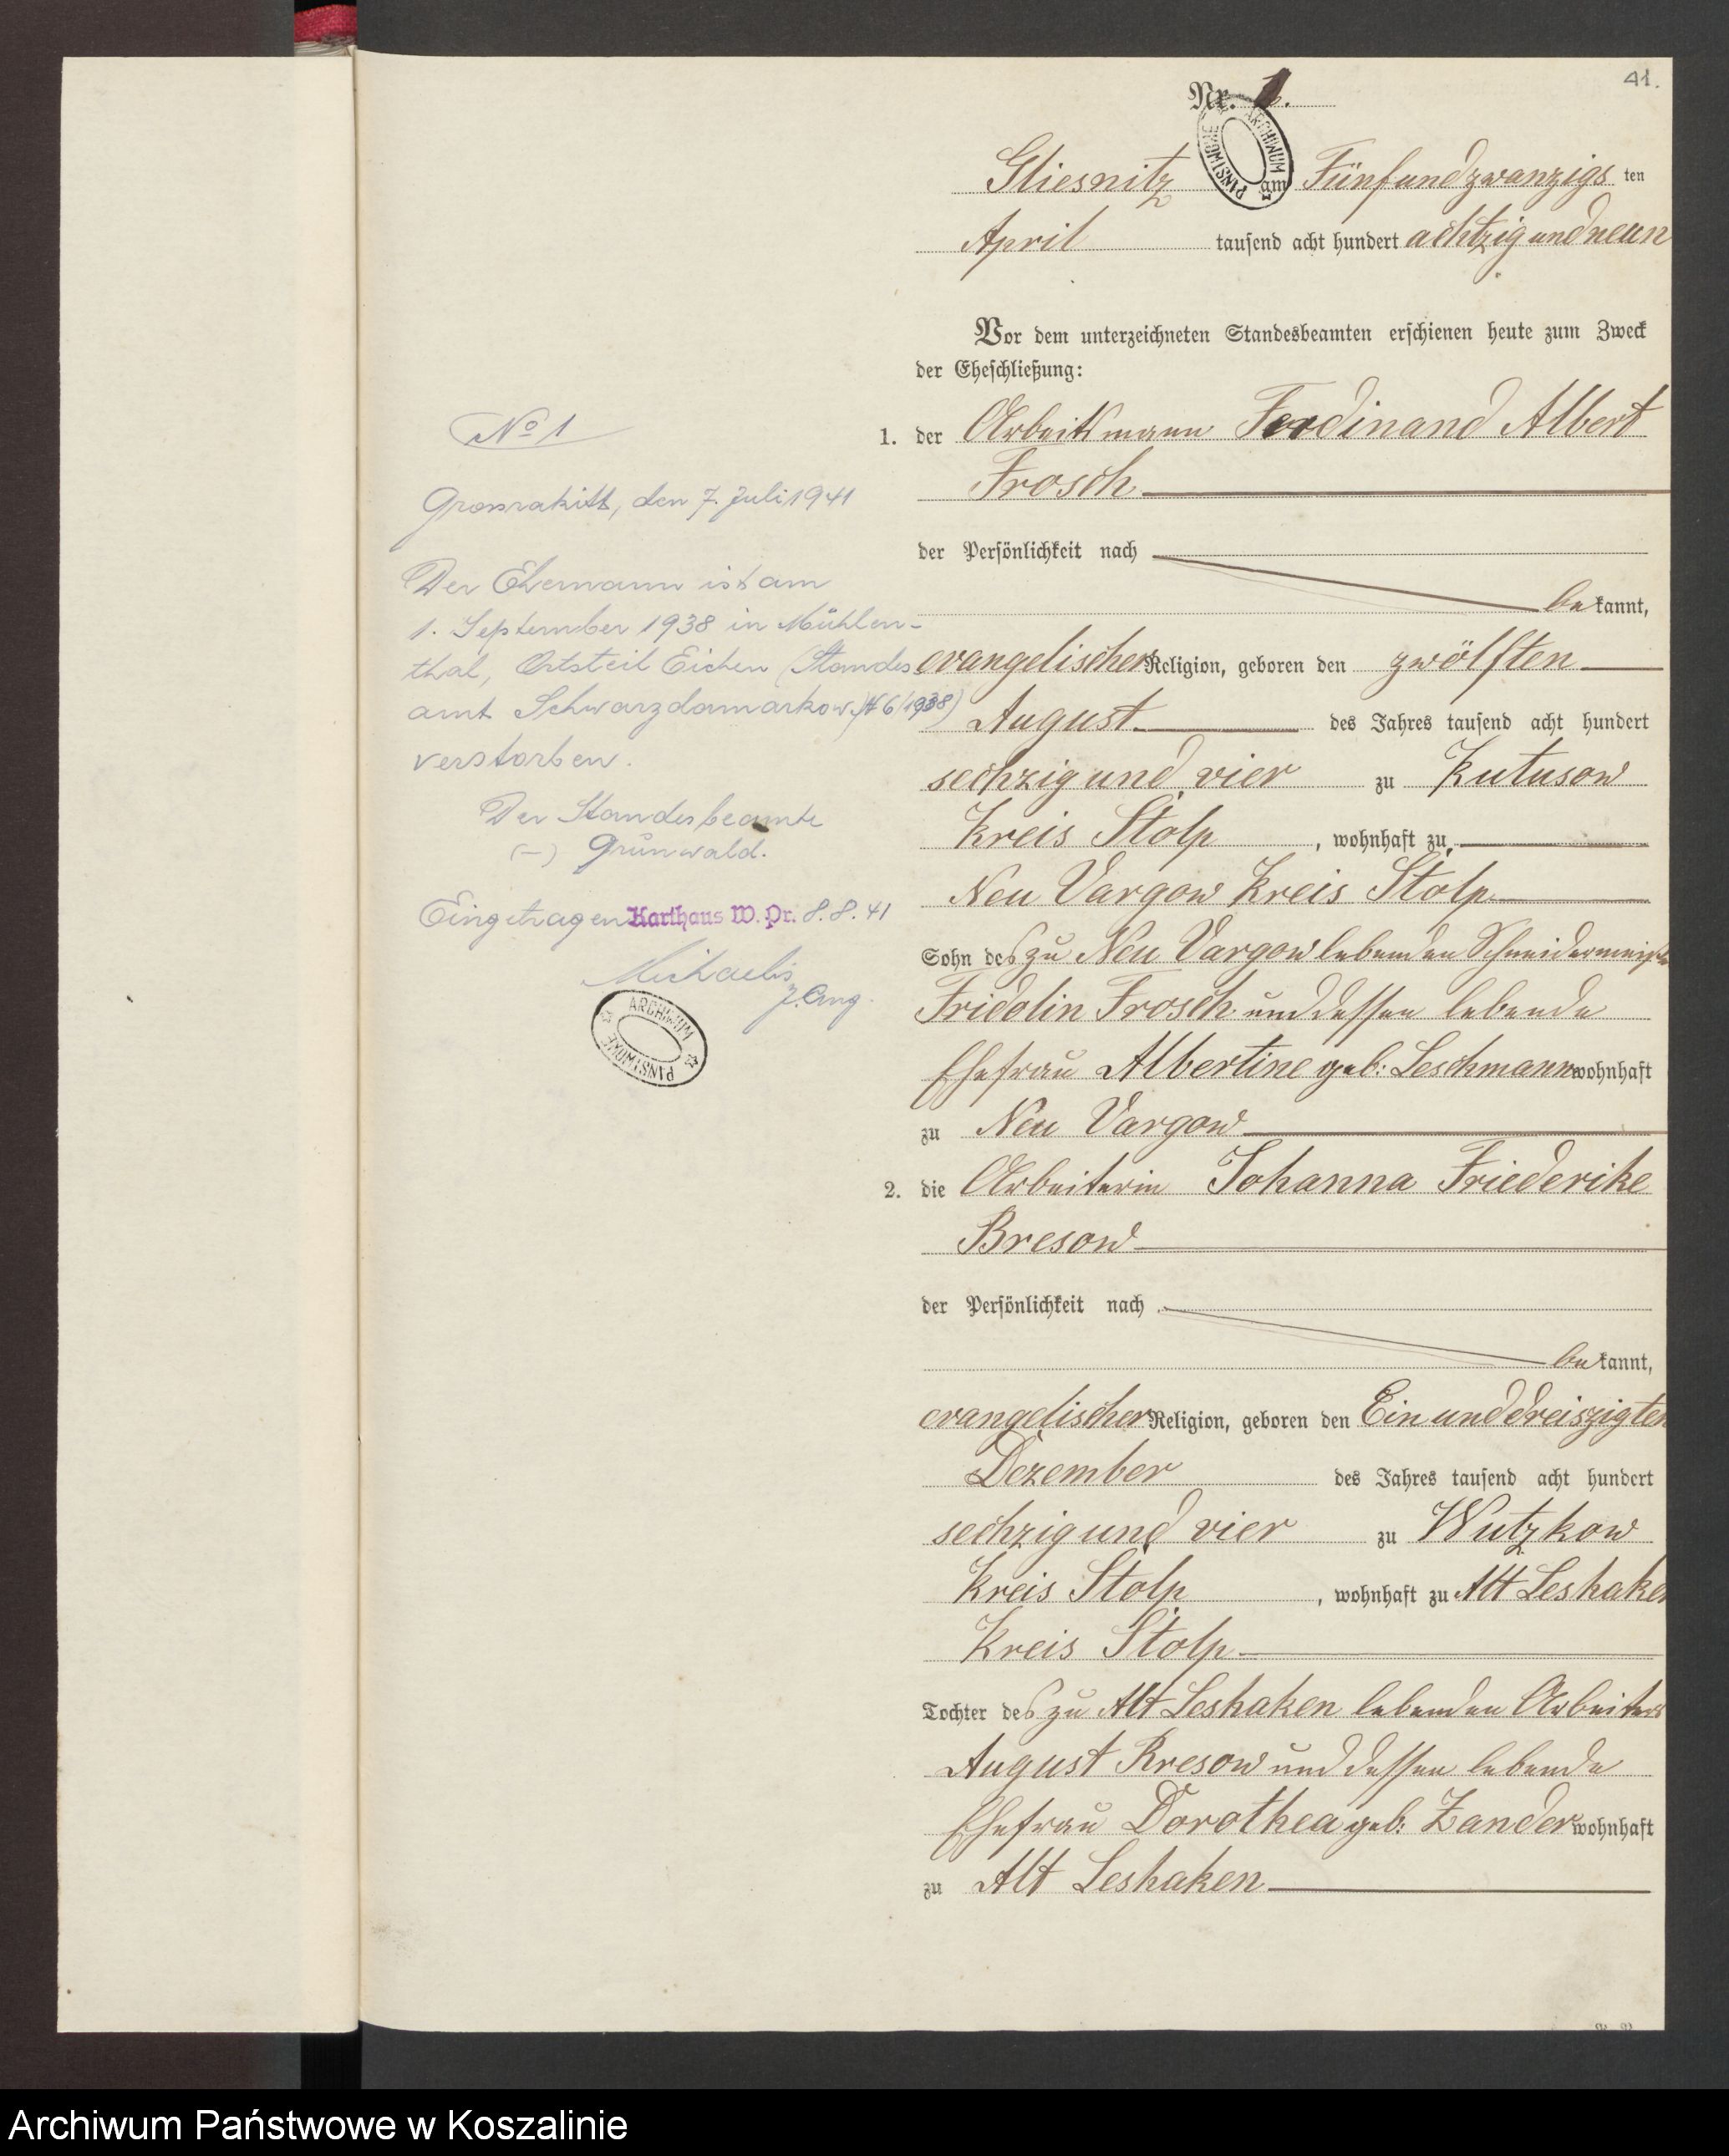 41.
Nr. 1.
Gliesnitz am Fünfundzwanzigs ten
April tausend acht hundert achtzig und neun
Vor dem unterzeichneten Standesbeamten erschienen heute zum Zweck
der Eheschließung:
1. der Arbeitsmann Ferdinand Albert
Frosch
der Persönlichkeit nach
be kannt,
evangelischer Religion, geboren den zwölften
August des Jahres tausend acht hundert
sechzig und vier zu Kutusow
Kreis Stolp, wohnhaft zu
Neu Vargow Kreis Stolp
Sohn des zu Neu Vargow lebenden Schneidermeisters
Fridolin Frosch und dessen lebende
Ehefrau Albertine geb: Leschmann wohnhaft
zu Neu Vargow
2. die Arbeiterin Johanna Friederike
Bresow
der Persönlichkeit nach
be kannt,
evangelischer Religion, geboren den Ein und dreiszigten
Dezember des Jahres tausend acht hundert
sechzig und vier zu Wutzkow
Kreis Stolp, wohnhaft zu Alt Leshaken
Kreis Stolp
Tochter des zu Alt Leshaken lebenden Arbeiters
August Bresow und dessen lebende
Ehefrau Dorothea geb: Zander wohnhaft
zu Alt Leshaken
No 1
Grossrakitt, den 7. Juli 1941
Der Ehemann ist am
1. September 1938 in Mühlen-
thal, Ortsteil Eichen (Standes-
amt Schwarzdamerkow) N 6/1938)
verstorben.
Der Standesbeamte
(-) Grünwald.
Eingetragen Karthaus W. Pr. 8. 8. 41
Michaelis
J. Ang.
ARCHIWUM PAŃSTWOWE
ARCHIWUM PAŃSTWOWE
Archiwum Państwowe w Koszalinie